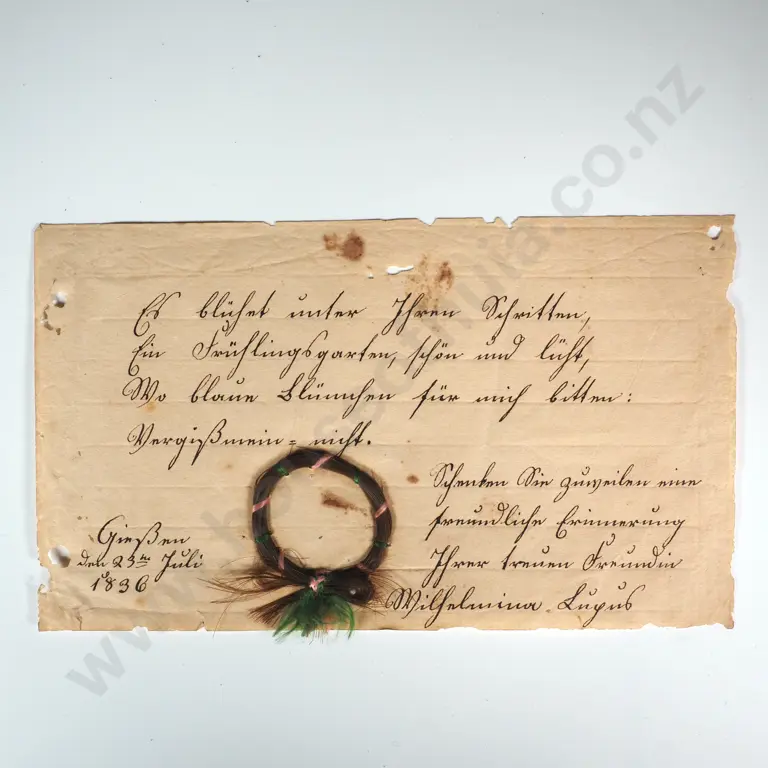 Es blühet unter Ihren Schritten,
Ein Frühlingsgarten, schön und licht,
Wo blaue Blümchen für mich bitten:
Vergißmein= nicht.
Schenken Sie zuweilen eine
freundliche Erinnerung
Ihrer treuen Freundin
Wilhelmina Lupus
Gießen
den 23ten Juli
1836